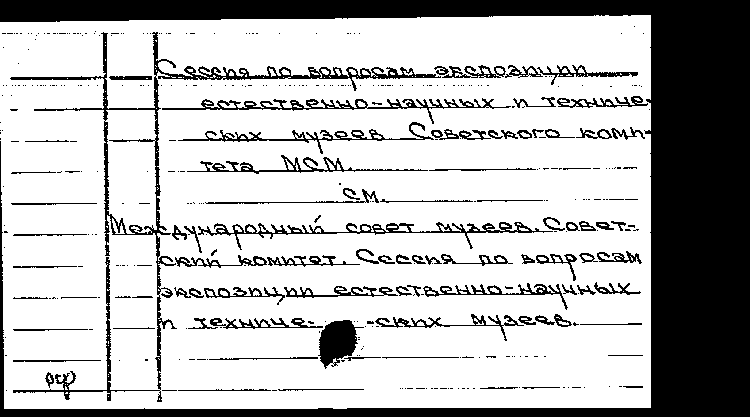 Сессия по вопросам экспозиции
естественно-научных и техниче-
ских музеев Советского коми-
тета МСМ.
см.
Международный совет музеев. Совет-
ский комитет. Сессия по вопросам
экспозиции естественно-научных
и техниче- -ских музеев.